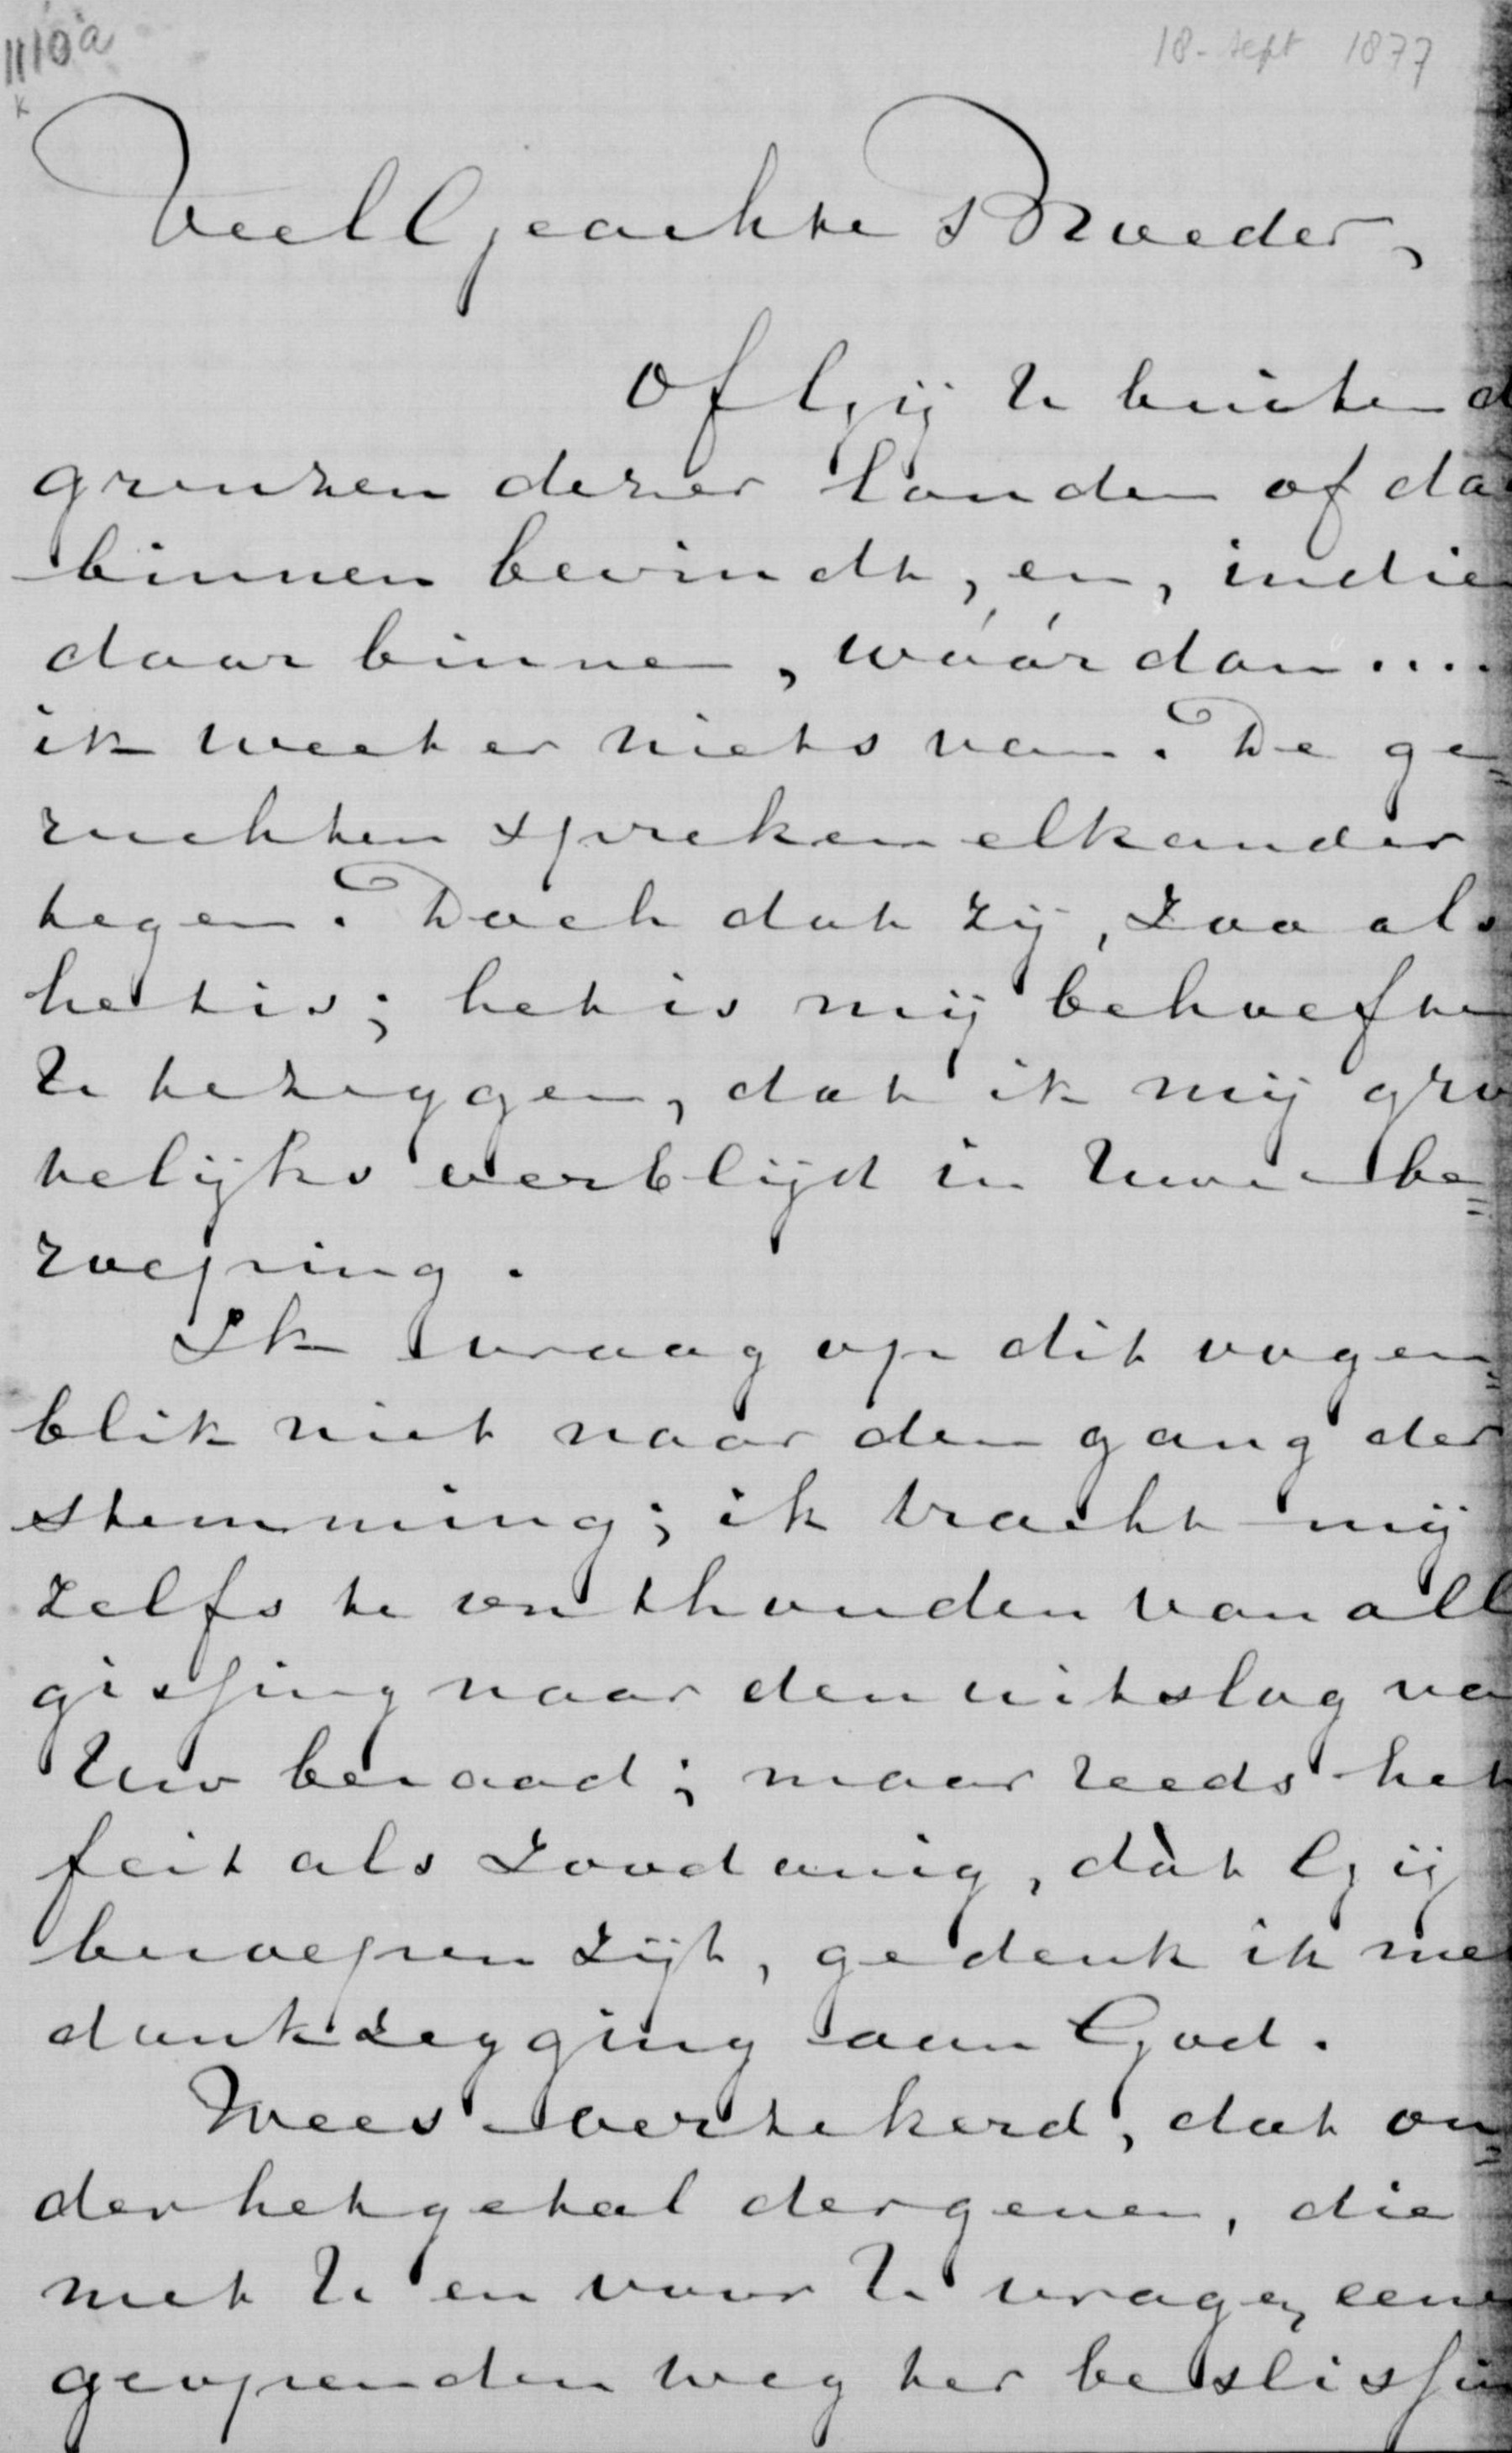 1110a
18 - sept 1877
Veel Geachte Broeder,
Of Gij U buiten d
grenzen dezer landen of da
binnen bevindt, en, indie
daar binnen, wáár dan....
ik weet er niets van. De ge=
ruchten spreken elkander
tegen. Doch dat zij, zoo als
het is; het is mij behoefte
U te zeggen, dat ik mij gro
telijks verblijd in Uwe be=
roeping.
Ik vraag op dit oogen=
blik niet naar den gang der
stemming; ik tracht mij
zelfs te onthouden van all
gissing naar den uitslag va
Uw beraad; maar reeds het
feit als zoodanig, dàt Gij
beroepen zijt, gedenk ik me
dankzegging aan God.
Wees verzekerd, dat on=
der het getal dergenen, die
met U en voor U vragen, eene
geopenden weg ter beslissin